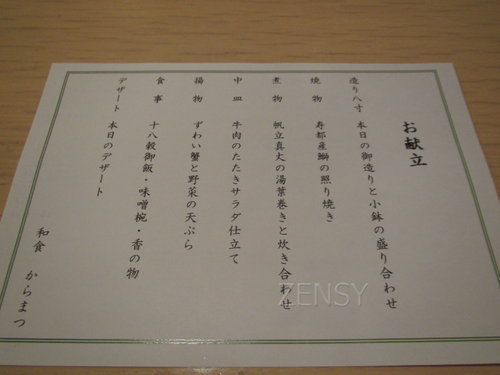 お献立
造り八寸 本日の御造りと小鉢の盛り合わせ
焼物 寿都産鰤の照り焼き
煮物 帆立真丈の湯葉巻きと炊き合わせ
中皿 牛肉のたたきサラダ仕立て
揚物 ずわい蟹と野菜の天ぷら
食事 十八穀御飯・味噌椀・香の物
デザート 本日のデザート
和食 からまつ
ZENSY